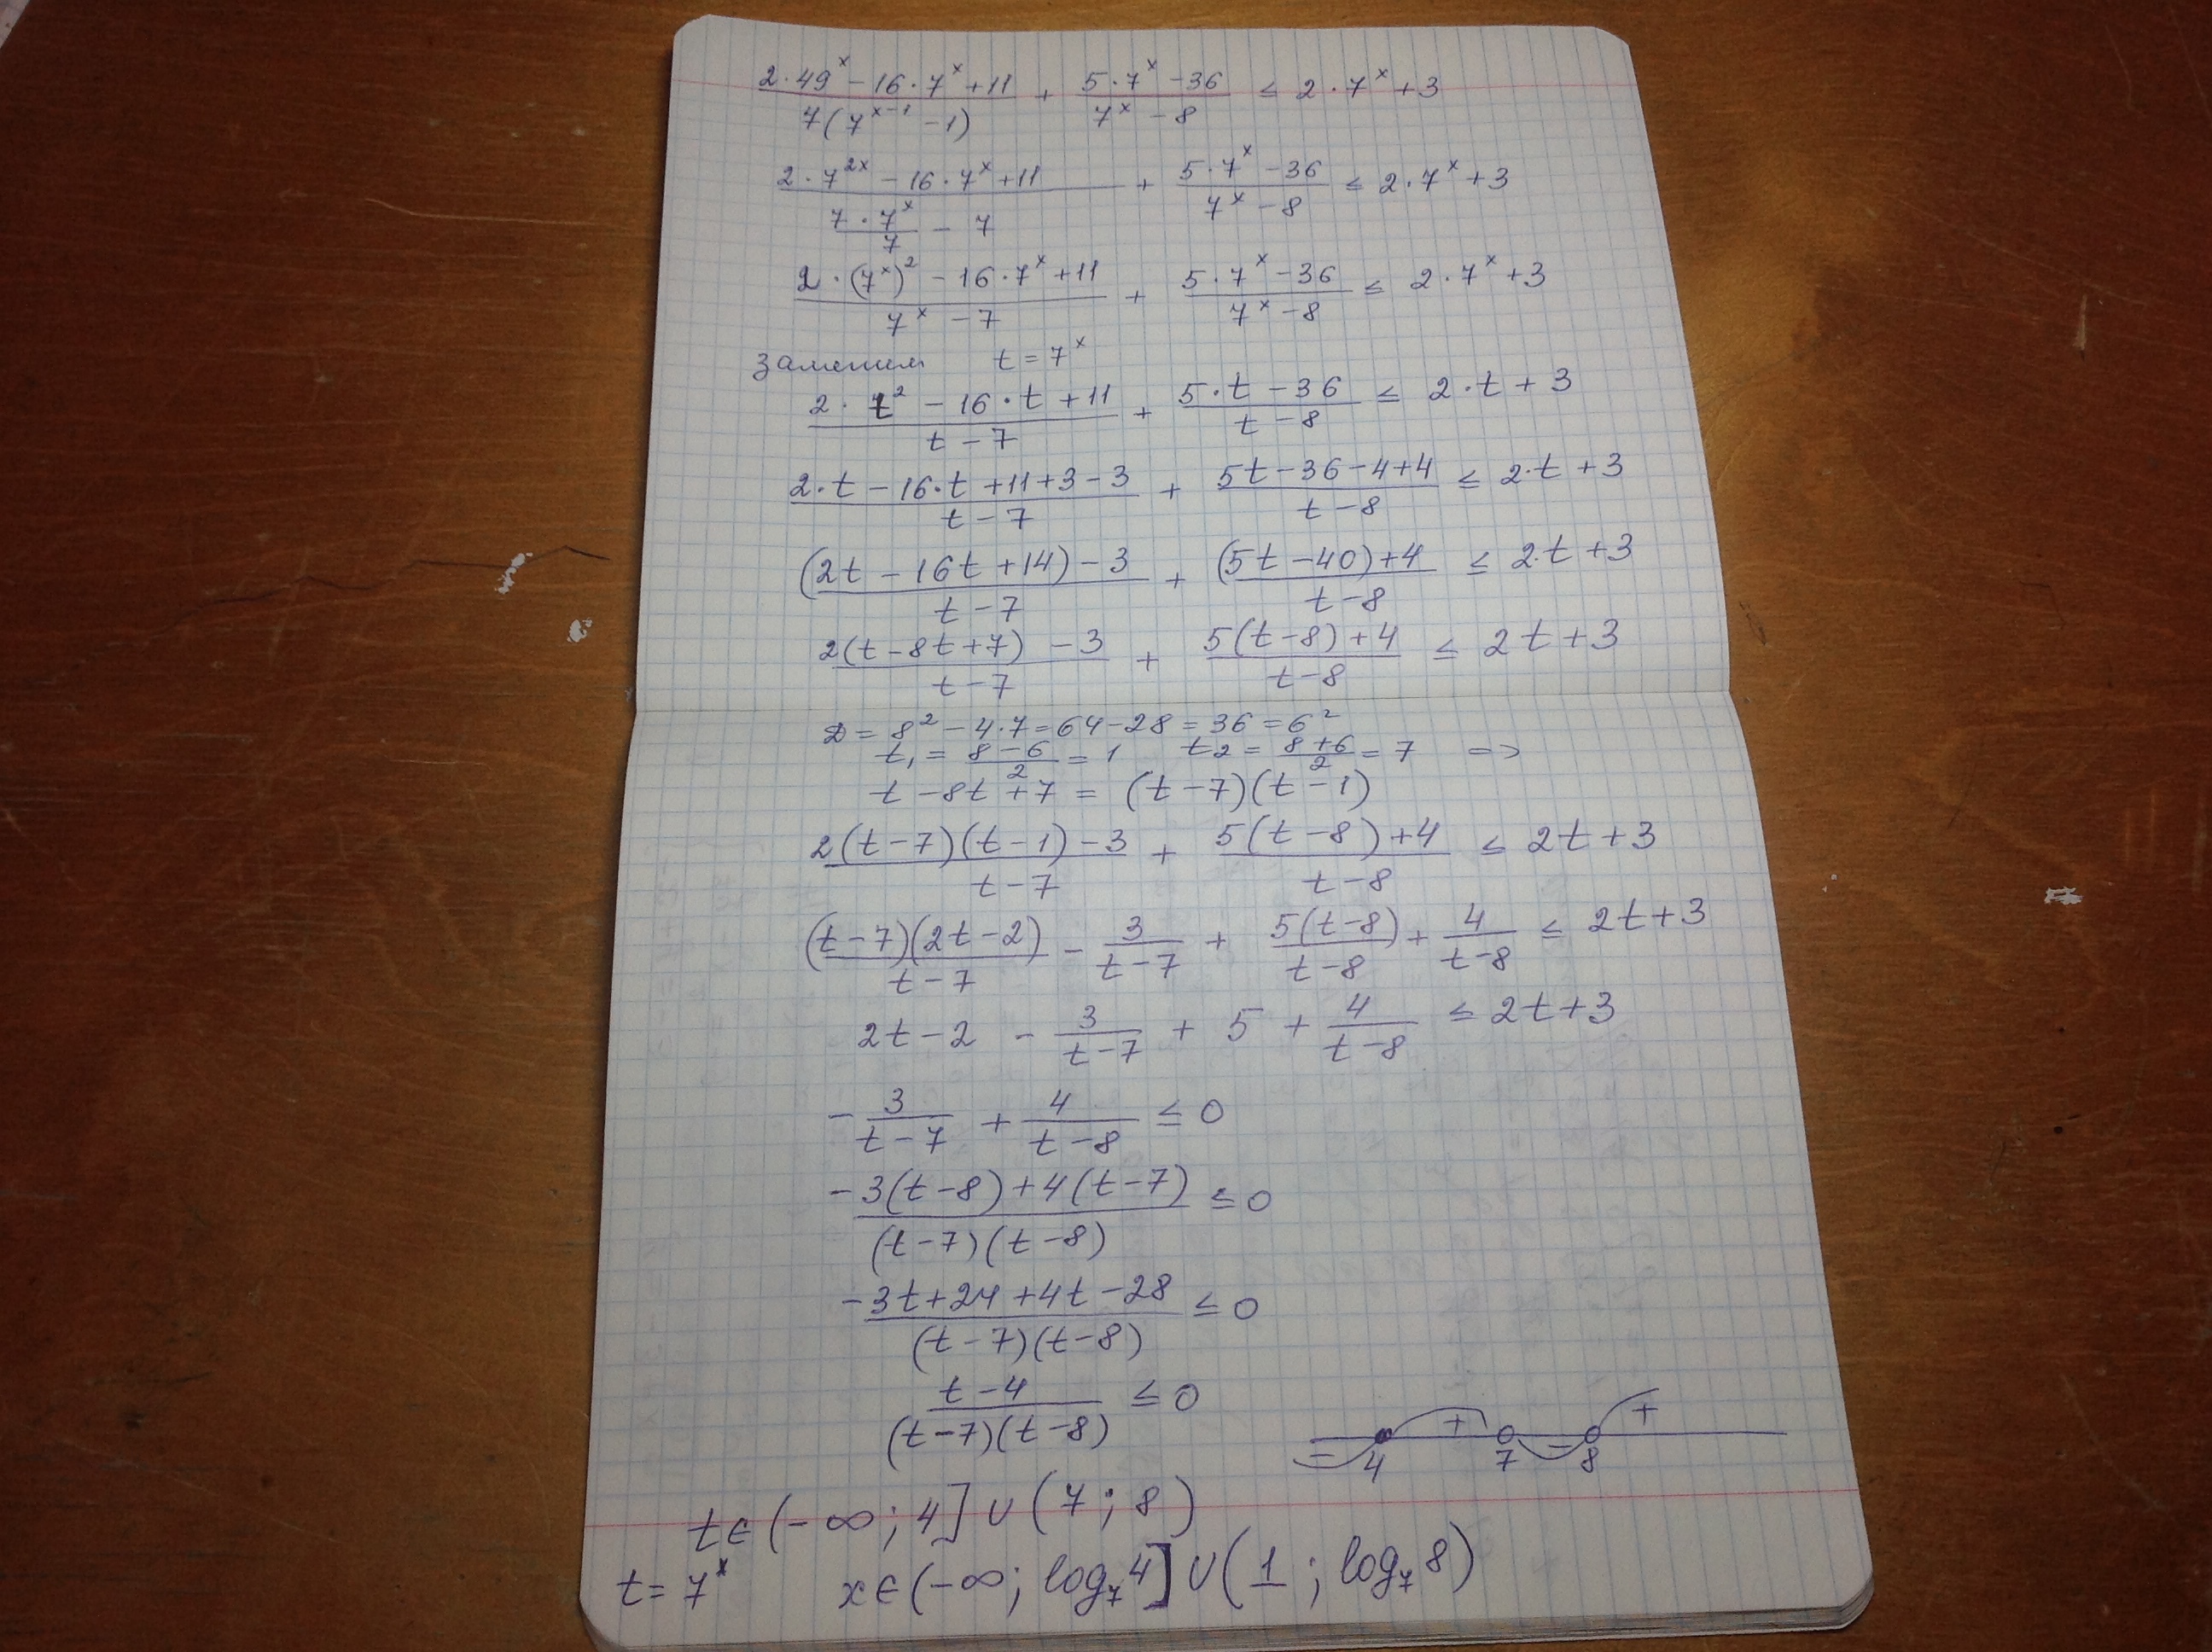 (2·49^x − 16·7^x + 11)/(7(7^(x−1) − 1)) + (5·7^x − 36)/(7^x − 8) ≤ 2·7^x + 3
(2·7^(2x) − 16·7^x + 11)/((7·7^x)/7 − 7) + (5·7^x − 36)/(7^x − 8) ≤ 2·7^x + 3
(2·(7^x)^2 − 16·7^x + 11)/(7^x − 7) + (5·7^x − 36)/(7^x − 8) ≤ 2·7^x + 3
Заменим t = 7^x
(2·t^2 − 16·t + 11)/(t − 7) + (5·t − 36)/(t − 8) ≤ 2·t + 3
(2·t − 16·t + 11 + 3 − 3)/(t − 7) + (5t − 36 − 4 + 4)/(t − 8) ≤ 2·t + 3
((2t − 16t + 14) − 3)/(t − 7) + ((5t − 40) + 4)/(t − 8) ≤ 2·t + 3
(2(t − 8t + 7) − 3)/(t − 7) + (5(t − 8) + 4)/(t − 8) ≤ 2t + 3
D = 8^2 − 4·7 = 64 − 28 = 36 = 6^2
t₁ = (8 − 6)/2 = 1 t₂ = (8 + 6)/2 = 7 =>
t − 8t + 7 = (t − 7)(t − 1)
(2(t − 7)(t − 1) − 3)/(t − 7) + (5(t − 8) + 4)/(t − 8) ≤ 2t + 3
((t − 7)(2t − 2))/(t − 7) − 3/(t − 7) + (5(t − 8))/(t − 8) + 4/(t − 8) ≤ 2t + 3
2t − 2 − 3/(t − 7) + 5 + 4/(t − 8) ≤ 2t + 3
− 3/(t − 7) + 4/(t − 8) ≤ 0
(−3(t − 8) + 4(t − 7))/((t − 7)(t − 8)) ≤ 0
(−3t + 24 + 4t − 28)/((t − 7)(t − 8)) ≤ 0
(t − 4)/((t − 7)(t − 8)) ≤ 0
− + − +
4 7 8
t ∈ (−∞; 4] ∪ (7; 8)
t = 7^x x ∈ (−∞; log₇4] ∪ (1; log₇8)